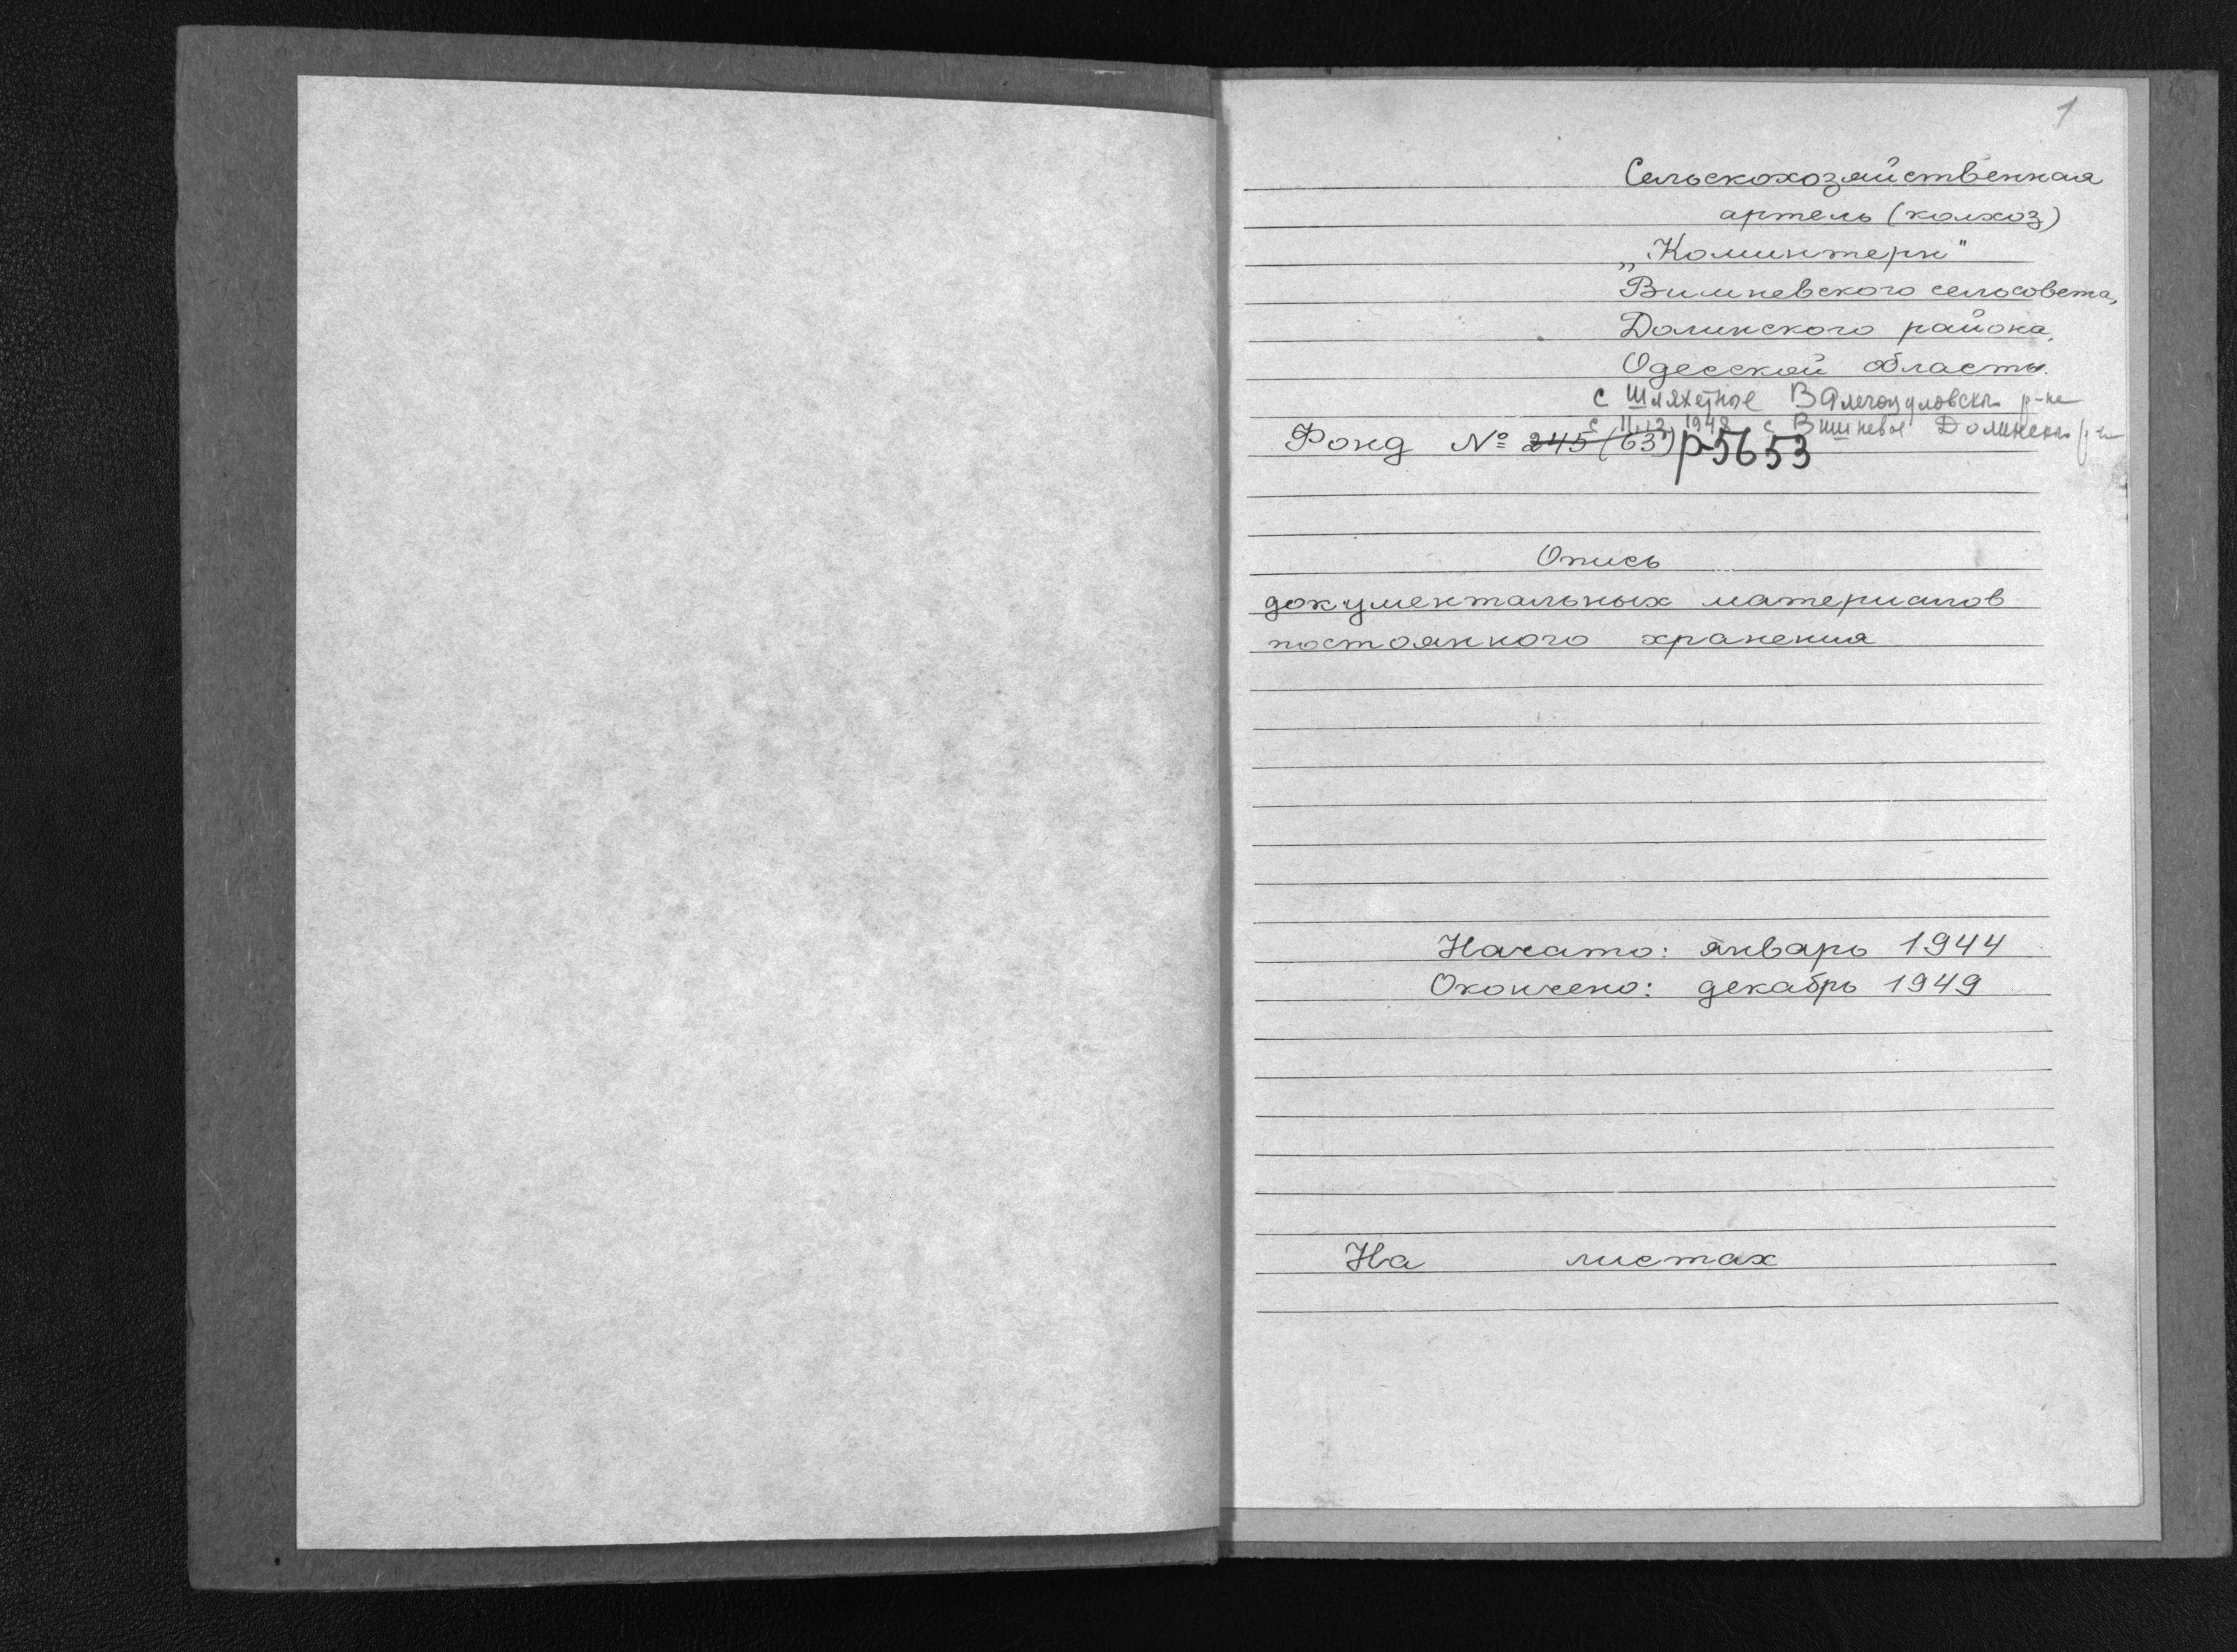 1
Сельскохозяйственная
артель (колхоз)
„Коминтерн"
Вишневского сельсовета,
Долинского района,
Одесской области.
с Шляхетное В р-на
с 1948 с Вишневое Долинского р-на
Фонд № 245 (63) р-5653
Опись
документальных материалов
постоянного хранения
Начато: январь 1944
Окончено: декабрь 1949
На листах